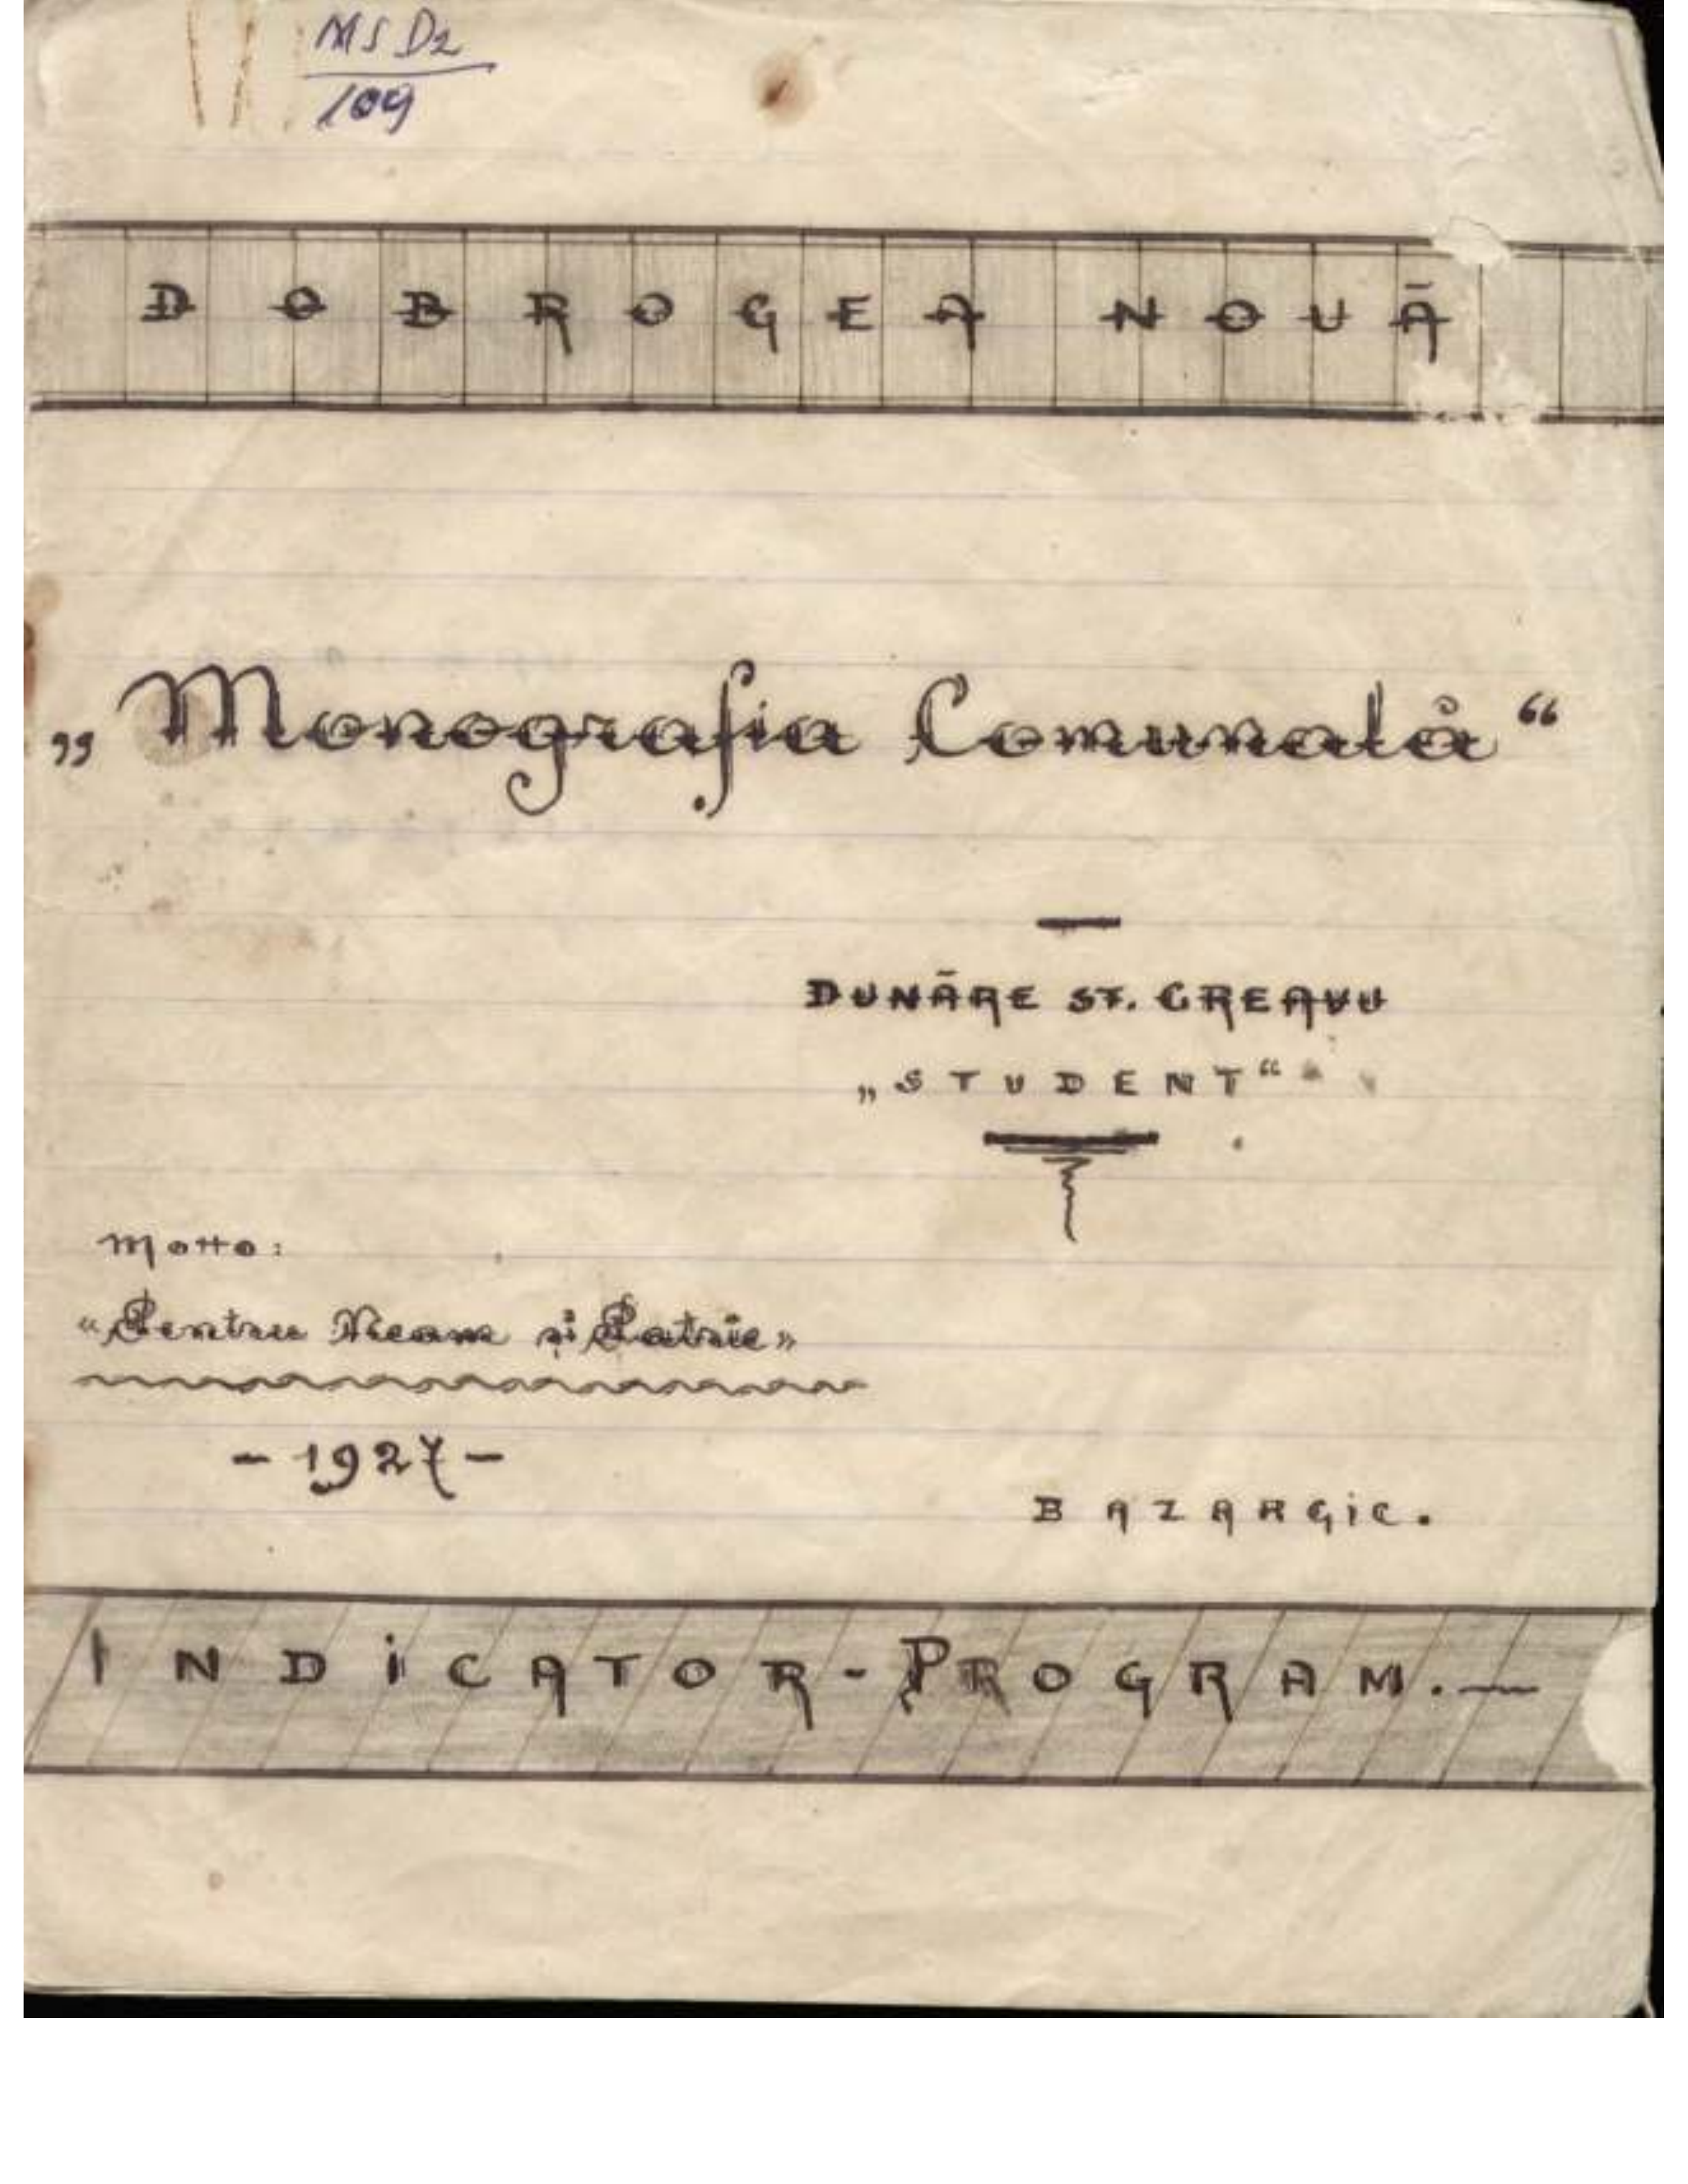 MS D2
109
DOBROGEA NOUĂ
„Monografia Comunală“
DUNĂRE ST. GREAVU
„STUDENT“
Motto:
"Pentru Neam și Patrie»
- 1927 -
BAZARGIC.
INDICATOR-PROGRAM.—